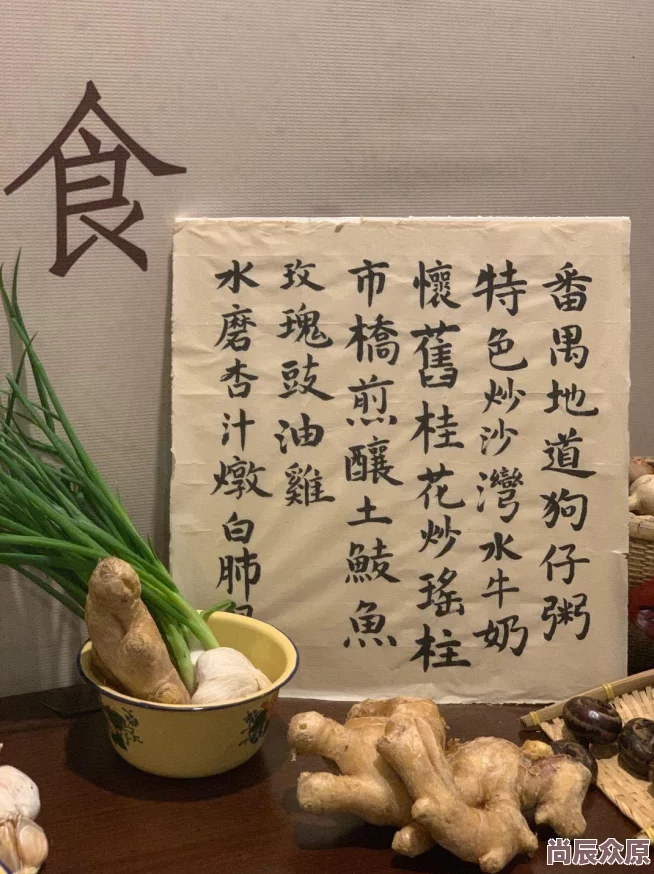 食
番禺地道狗仔粥
特色炒沙灣水牛奶
懷舊桂花炒瑤柱
市橋煎釀土鯪魚
玫瑰豉油雞
水磨杏汁燉白肺
尚辰众原